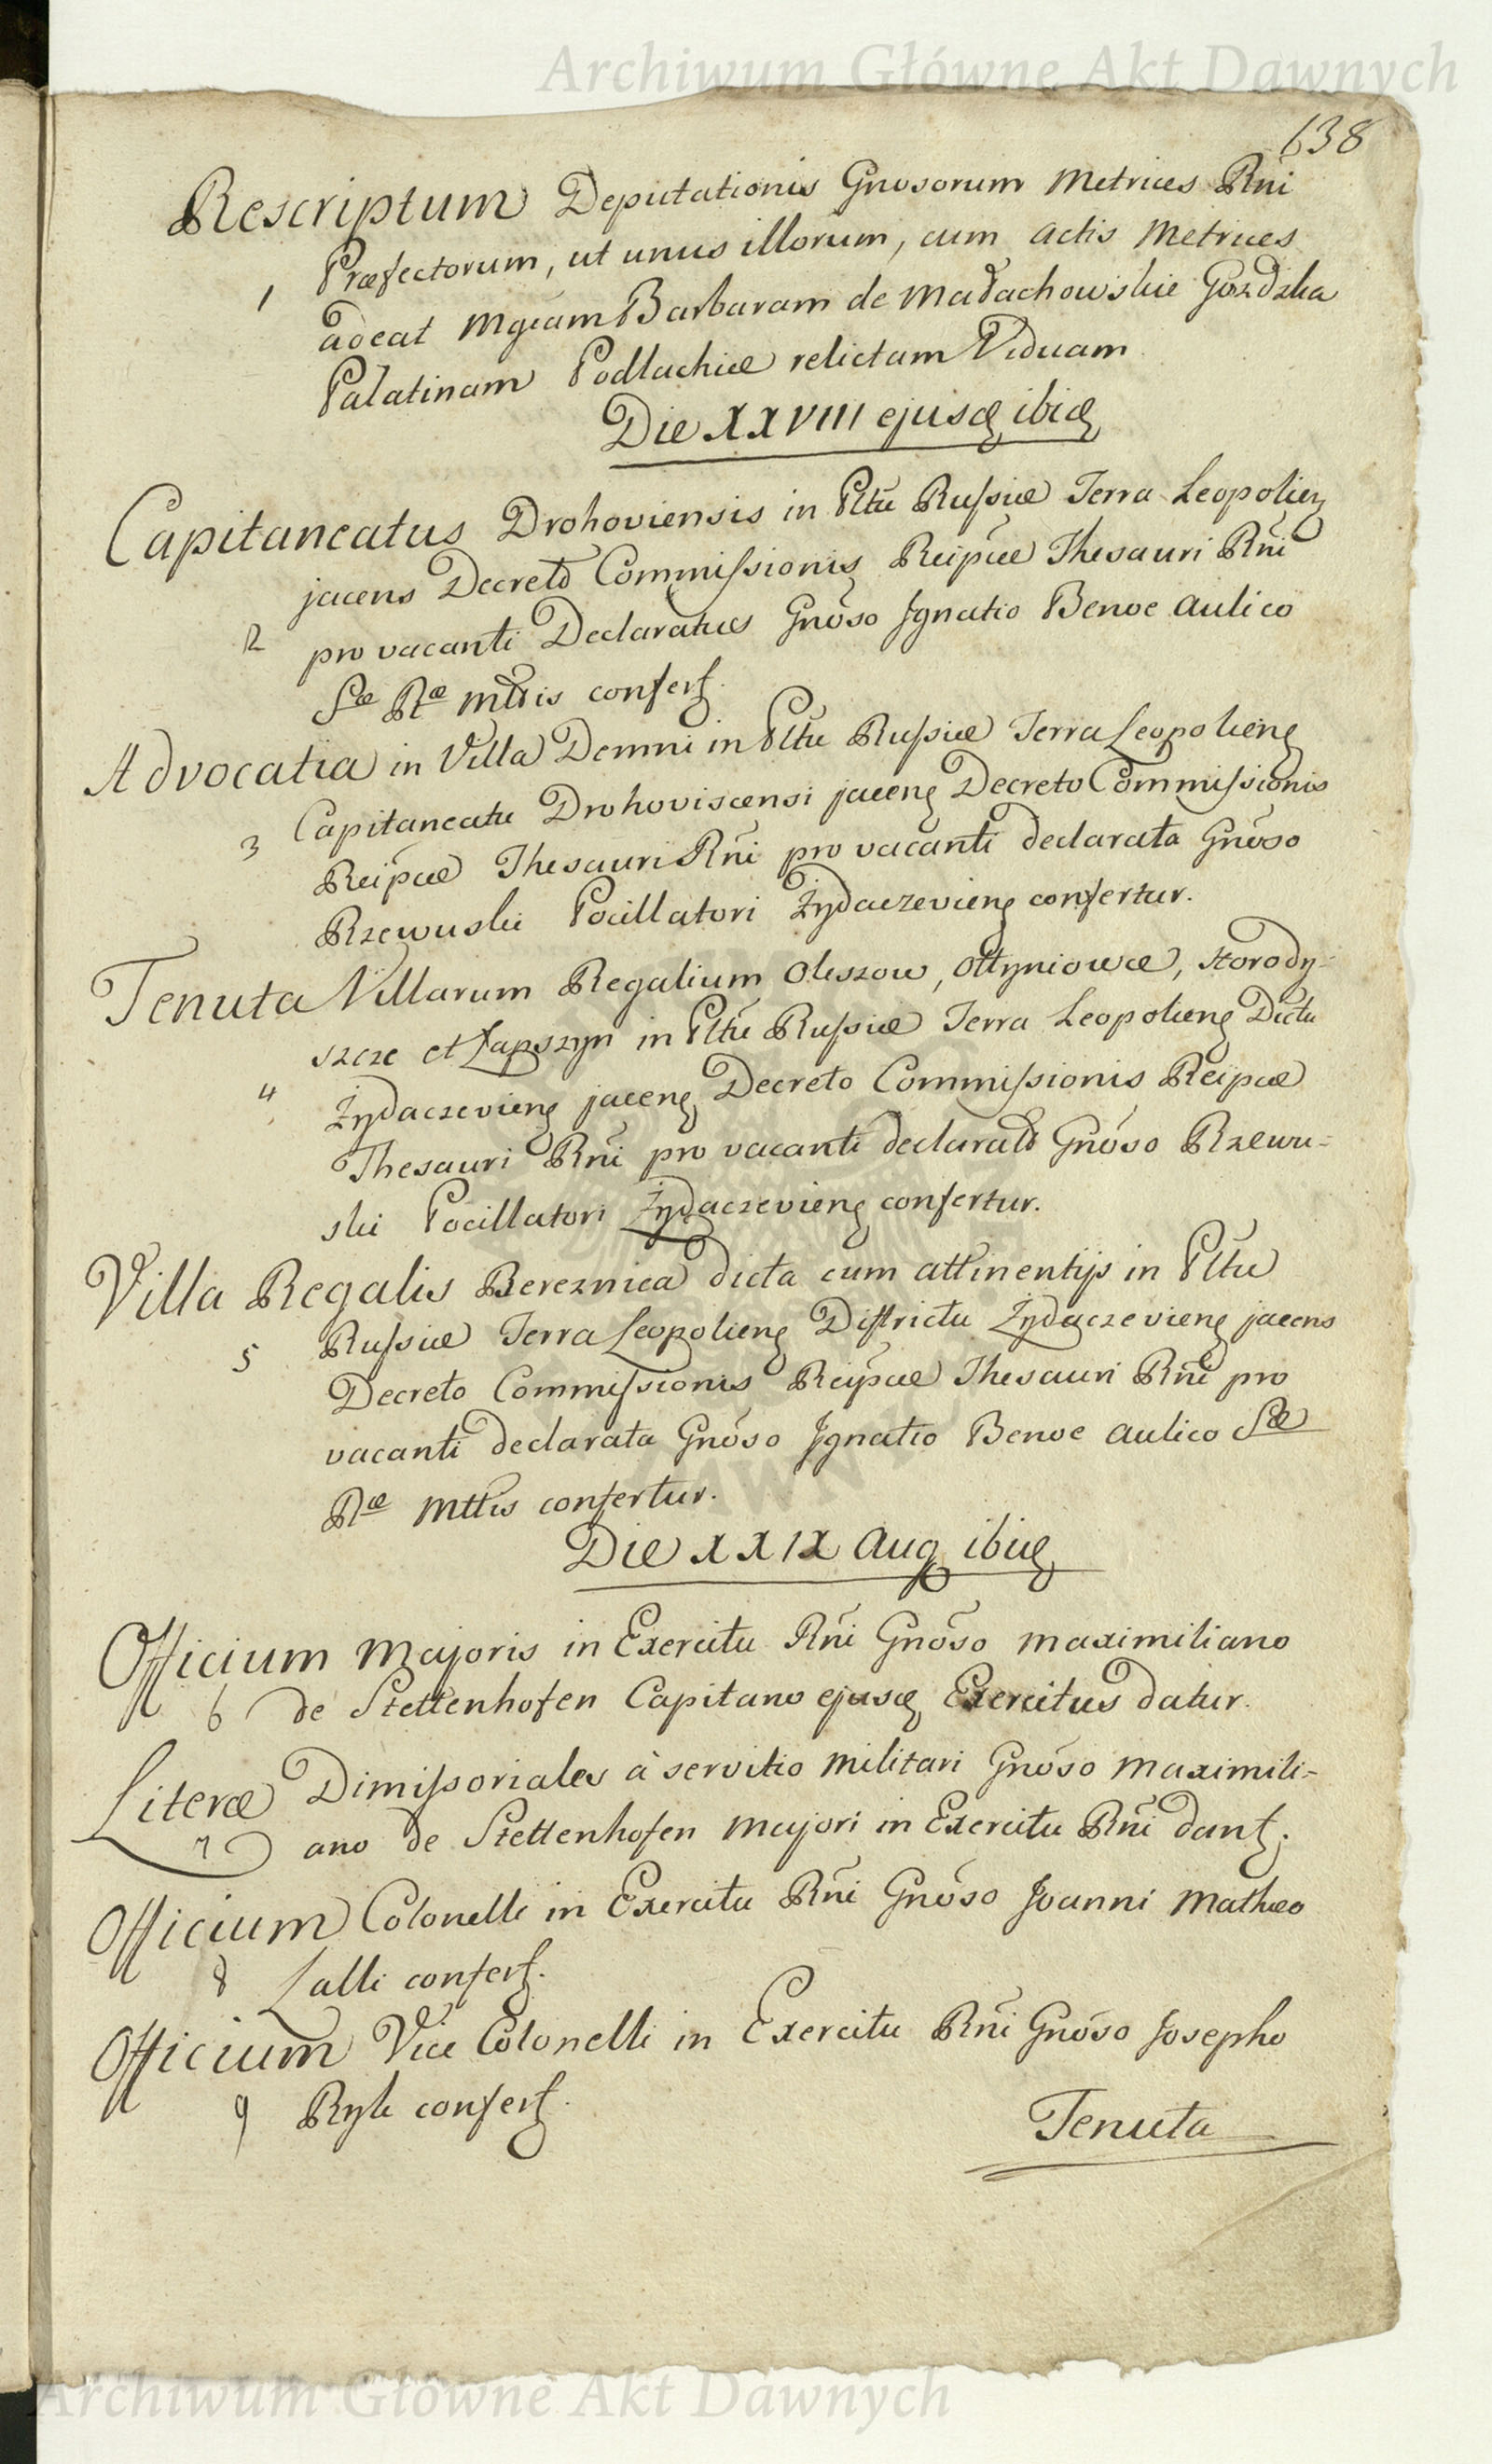 Archiwum Główne Akt Dawnych
638
Rescriptum Deputationis Gnosorum Metrices Rni
Præfectorum, ut unus illorum, cum Actis Metrices
1
adeat Mgcam Barbaram de Małachowskie Gozdzka
Palatinam Podlachiæ relictam Viduam
Die XXVIII ejusq ibiq
Capitaneatus Drohoviensis in Pltũ Russiæ Terra Leopolien
jacens Decreto Commissionis Reipcæ Thesauri Rni
2 pro vacanti Declaratus Gnoso Ignatio Benoe Aulico
Sæ Ræ Mttis confert.
Advocatia in Villa Demni in Pltu Russiæ Terra Leopolien
3 Capitaneatu Drohoviscensi jacen Decreto Commissionis
Reipcæ Thesauri Rni pro vacanti declarata Gnoso
Rzewuski Pocillatori Żydaczevien confertur.
Tenuta Villarum Regalium Oleszow, Ottyniowce, Horody-
szcze et Łapszyn in Pltu Russiæ Terra Leopolien Dictu
4 Żydaczevien jacen Decreto Commissionis Reipcæ
Thesauri Rni pro vacanti declarato Gnoso Rzewu-
ski Pocillatori Żydaczevien confertur.
Villa Regalis Bereznica dicta cum attinentijs in Pltu
5 Russiæ Terra Leopolien Districtu Żydaczevien jacens
Decreto Commissionis Reipcæ Thesauri Rni pro
vacanti declarata Gnoso Ignatio Benoe Aulico Sæ
Ræ Mttis confertur.
Die XXIX Aug ibiq
Officium Majoris in Exercitu Rni Gnoso Maximiliano
6 de Stettenhofen Capitano ejusq Exercitus datur.
Literæ Dimissoriales à servitio Militari Gnoso Maximili-
7 ano de Stettenhofen Majori in Exercitu Rni dant.
Officium Colonelli in Exercitu Rni Gnoso Joanni Mathæo
8 Lalli confert.
Officium Vice Colonelli in Exercitu Rni Gnoso Josepho
9 Ryk confert.
Tenuta
Archiwum Główne Akt Dawnych